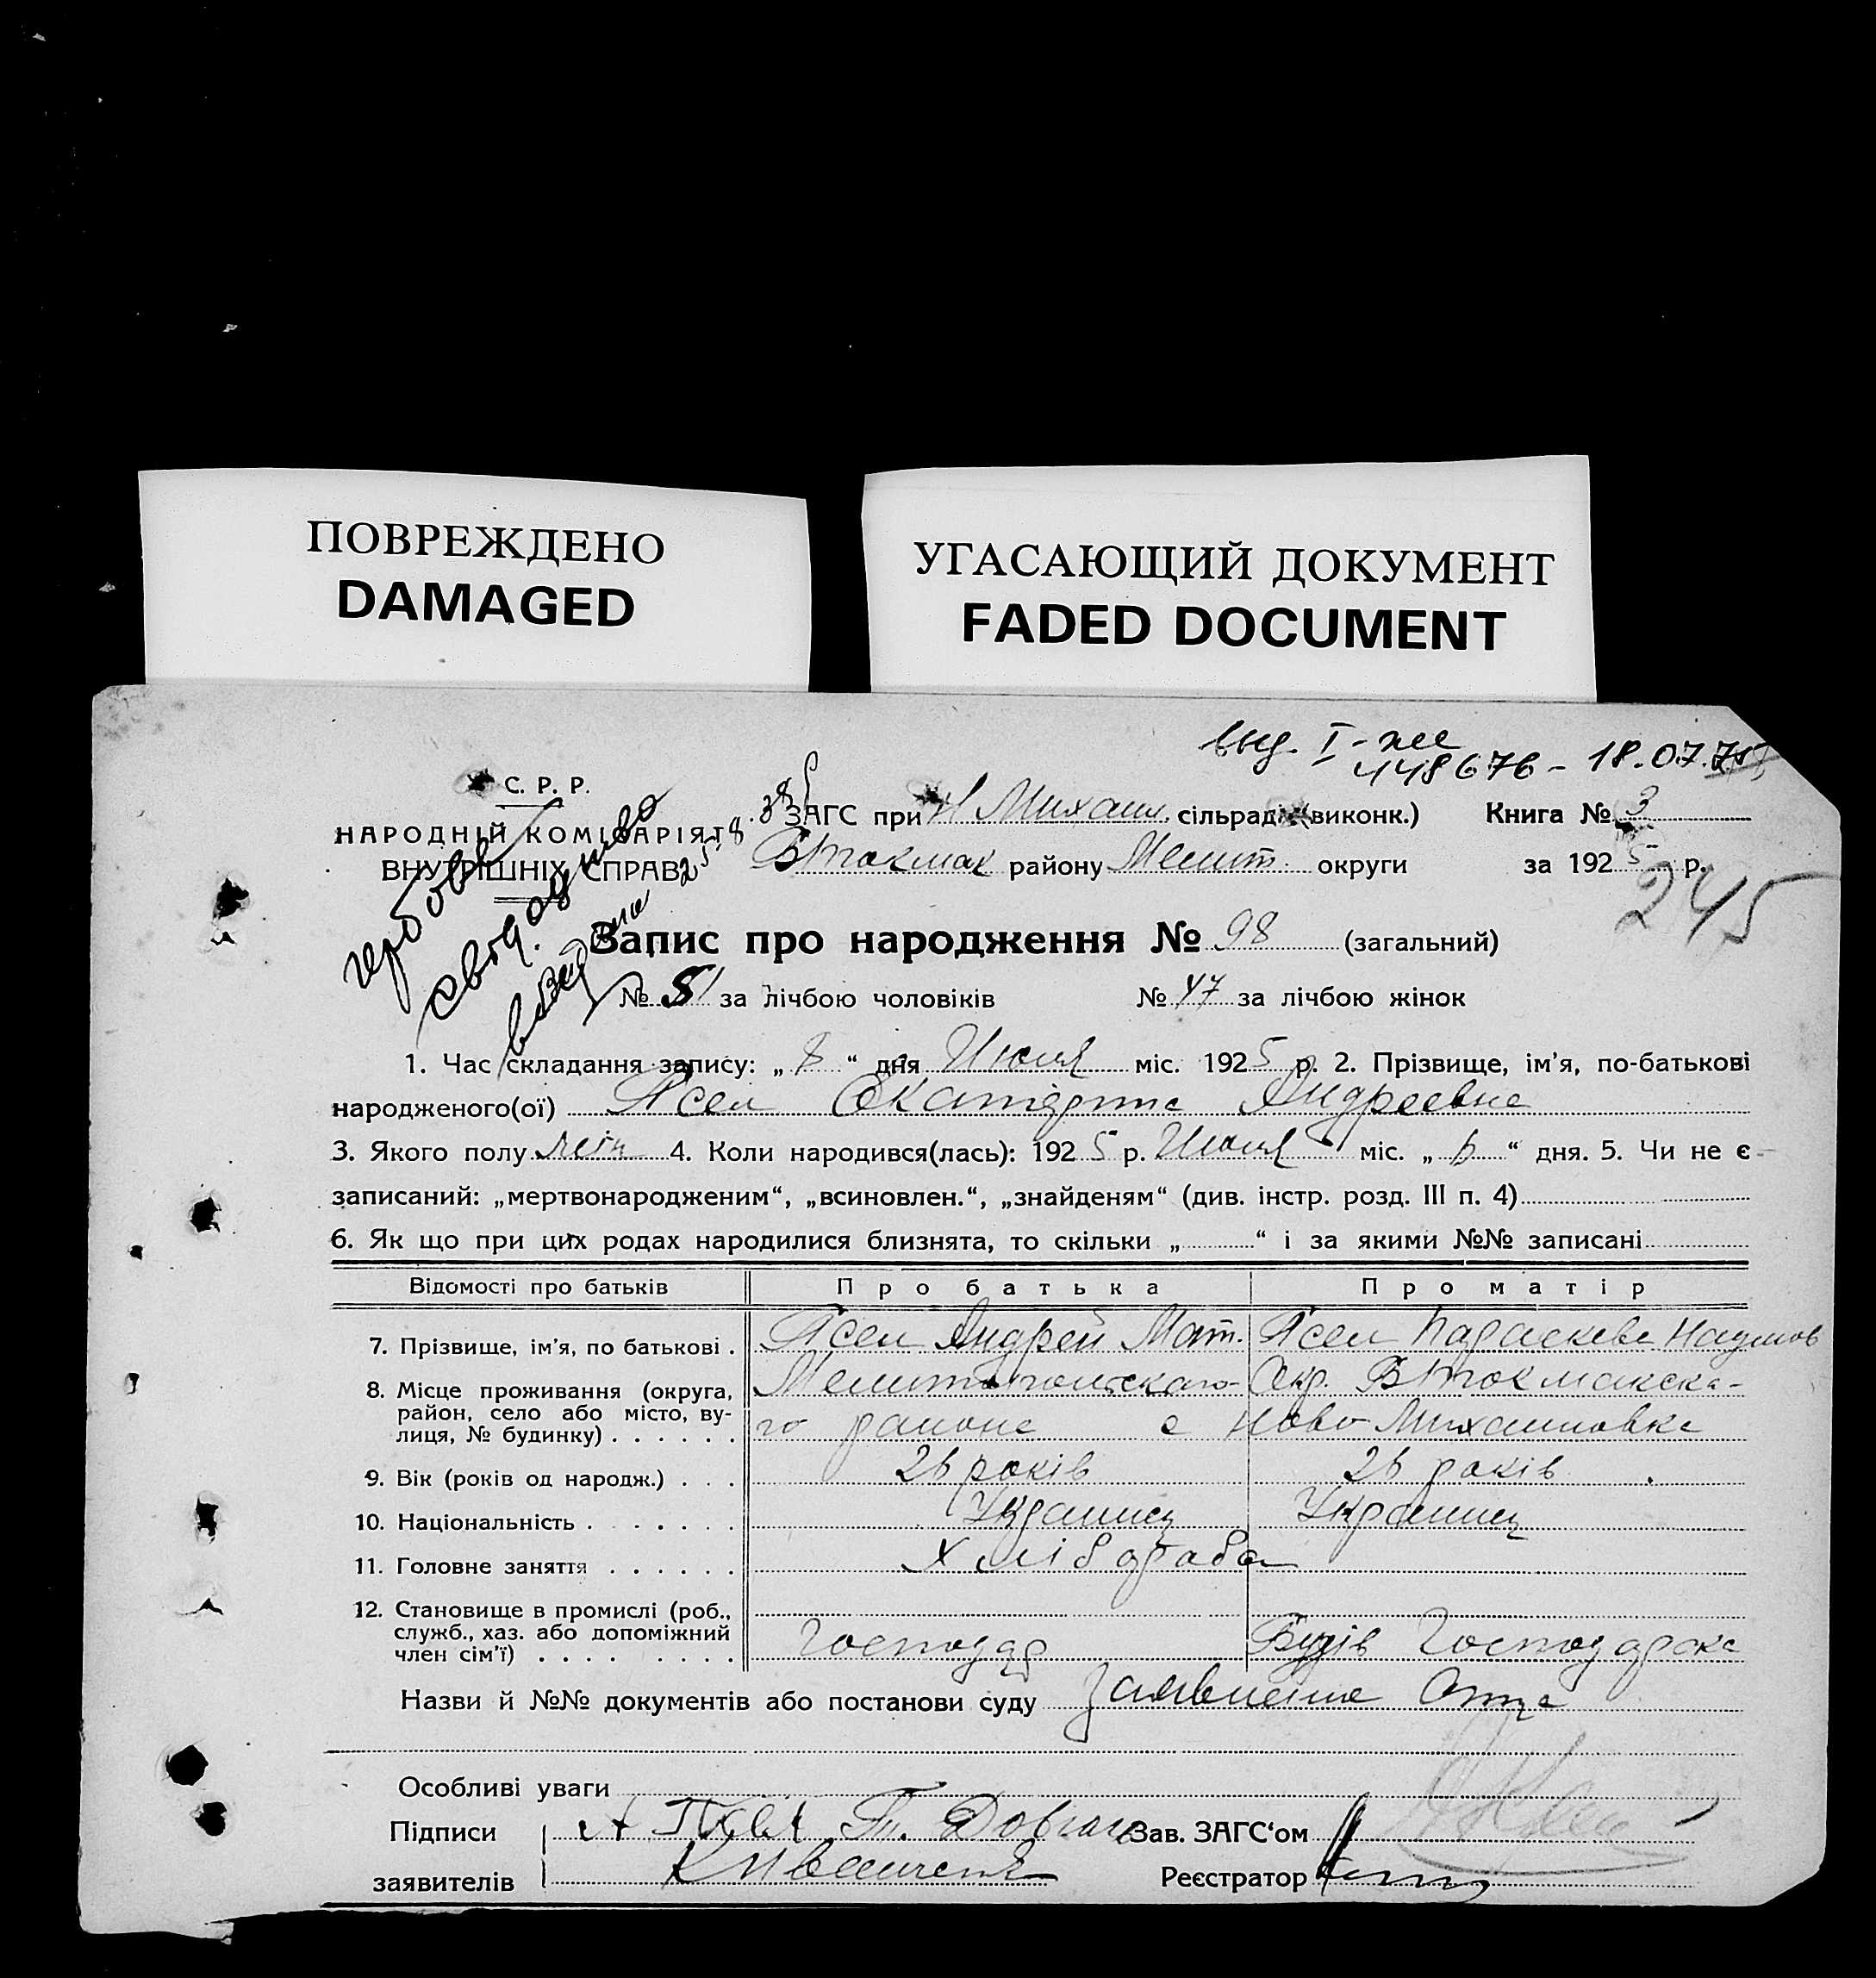 ПОВРЕЖДЕНО
DAMAGED
УГАСАЮЩИЙ ДОКУМЕНТ
FADED DOCUMENT
448676 - 18.07.
С. Р. Р.
НАРОДНІЙ КОМІСАРІЯТ
ВНУТРІШНІХ СПРАВ
ЗАГС при Н Михайл. сільраді (виконк.) Книга № 3
ВТокмак району Мелит. округи за 1925 р.
245
Запис про народження № 98 (загальний)
№ 51 за лічбою чоловіків № 47 за лічбою жінок
1. Час складання запису: „ 8 “ дня Июля міс. 1925 р. 2. Прізвище, ім’я, по-батькові
народженого(ої) Псел Екатерина Андреевна
3. Якого полу жін 4. Коли народився(лась): 1925 р. Июля міс. „ 6 “ дня. 5. Чи не є
записаний: „мертвонародженим“, „всиновлен.“, „знайденям“ (див. інстр. розд. III п. 4)
6. Як що при цих родах народилися близнята, то скільки „ “ і за якими №№ записані
Відомості про батьків Про батька Про матір
7. Прізвище, ім’я, по батькові . Псел Андрей Мат. Псел Параскева Наумов
8. Місце проживання (округа, Мелитопольскаго Окр. ВТокмакска-
район, село або місто, ву-
лиця, № будинку) . . . . . . го района с Ново Михайловка
9. Вік (років од народж.) . . . 26 років 26 років
10. Національність . . . . . . . Украинец Украинец
11. Головне заняття . . . . . . Хлібороба
12. Становище в промислі (роб.,
служб., хаз. або допоміжний
член сім’ї) . . . . . . . . Господар Господарка
Назви й №№ документів або постанови суду Заявление Отца
Особливі уваги
Підписи А Псел Т. Довгаль Зав. ЗАГС‘ом
заявителів Реєстратор